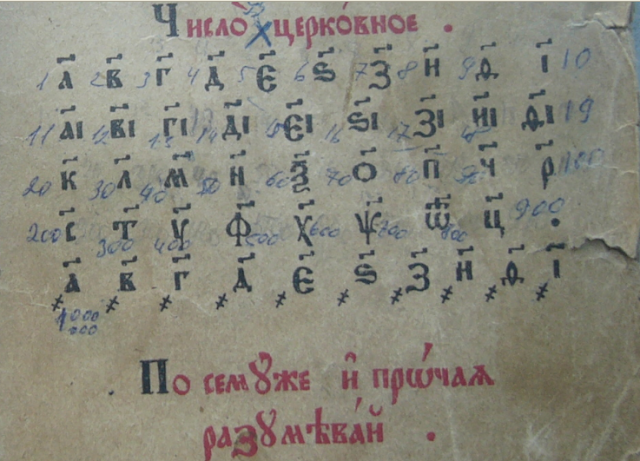 Число̀ церко́вное .
1 а҃ 2 в҃ 3 г҃ 4 д҃ 5 є҃ 6 ѕ҃ 7 з҃ 8 и҃ 9 ѳ҃ і҃ 10
11 а҃і 12 в҃і г҃і 14 д҃і є҃і 16 ѕ҃і 17 з҃і и҃і ѳ҃і 19
20 к҃ 30 л҃ 40 м҃ 50 н҃ 60 ѯ҃ 70 о҃ 80 п҃ 90 ч҃ р҃ 100
200 с҃ 300 т҃ 400 у҃ ф҃ 500 х҃ 600 ѱ҃ 700 ѿ҃ 800 ц҃ 900 .
҂а҃ ҂в҃ ҂г҃ ҂д҃ ҂є҃ ҂ѕ҃ ҂з҃ ҂и҃ ҂ѳ҃ ҂і҃
По семꙋ́же и҆ прѡ́чаѧ
разꙋмѣва́й .